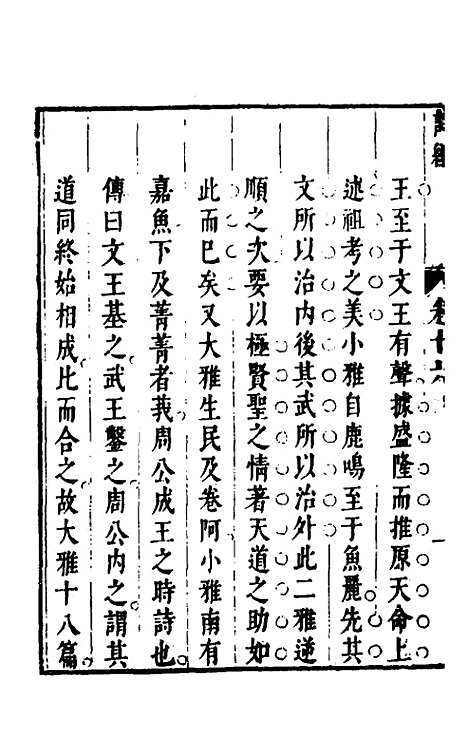 卷十六
王至于文王有聲據盛隆而推原天命上
述祖考之美小雅自鹿鳴至于魚麗先其
文所以治内後其武所以治外此二雅逆
順之次要以極賢聖之情著天道之助如
此而巳矣又大雅生民及卷阿小雅南有
嘉魚下及菁菁者莪周公成王之時詩也
傳曰文王基之武王鑿之周公内之謂其
道同終始相成比而合之故大雅十八篇